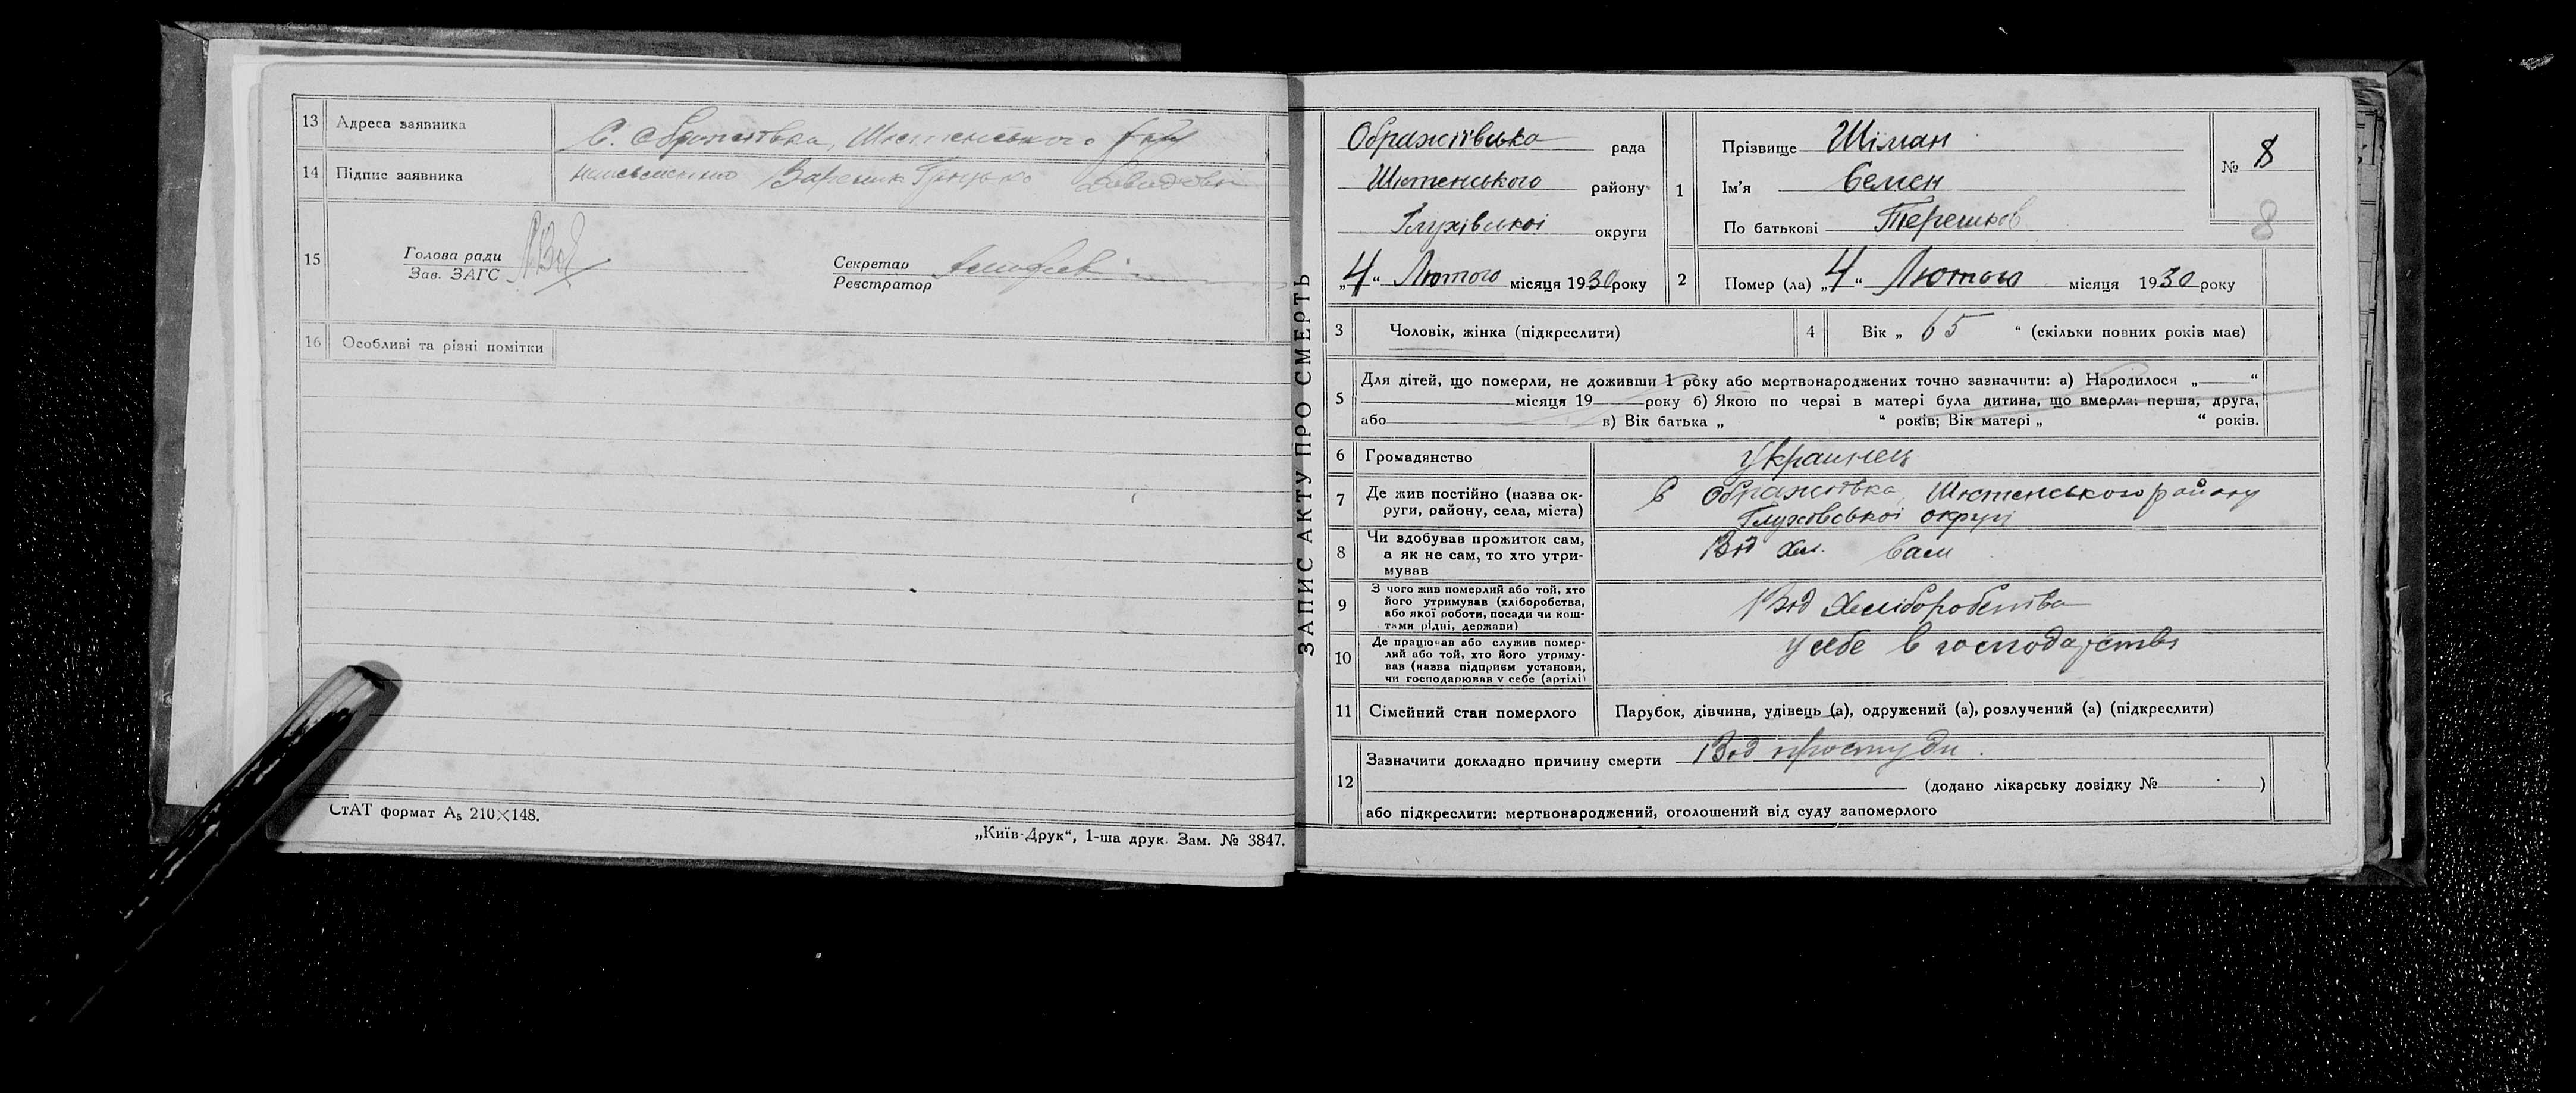 13 Адреса заявника С. Ображіївка, Шостенського рай
14 Підпис заявника
15 Голова ради
Зав. ЗАГС
Секретар
Реєстратор
16 Особливі та різні помітки
СтАТ формат А₅ 210×148.
„Київ-Друк“, 1-ша друк. Зам. № 3847.
ЗАПИС АКТУ ПРО СМЕРТЬ
Ображіївська рада
Шостенського району
Глухівської округи
„4“ Лютого місяця 1930 року
1 Прізвище Шіман
Ім’я Семен
По батькові Терешков
№ 8
8
2 Помер (ла) „4“ Лютого місяця 1930 року
3 Чоловік, жінка (підкреслити)
4 Вік „ 65 “ (скільки повних років має)
5 Для дітей, що померли, не доживши 1 року або мертвонароджених точно зазначити: а) Народилося „ “
місяця 19 року б) Якою по черзі в матері була дитина, що вмерла: перша, друга,
або в) Вік батька „ “ років; Вік матері „ “ років.
6 Громадянство Украинец
7 Де жив постійно (назва ок-
руги, району, села, міста)
С Ображіївка, Шостенського району
Глухівської округи
8 Чи здобував прожиток сам,
а як не сам, то хто утри-
мував
Від хл. Сам
9 З чого жив померлий або той, хто
його утримував (хліборобства,
або якої роботи, посади чи кош-
тами рідні, держави)
Від Хліборобства
10 Де працював або служив помер-
лий або той, хто його утриму-
вав (назва підприєм установи,
чи господарював у себе (артілі)
у себе в господарстві
11 Сімейний стан померлого Парубок, дівчина, удівець (а), одружений (а), розлучений (а) (підкреслити)
12 Зазначити докладно причину смерти Від простуди.
(додано лікарську довідку № )
або підкреслити: мертвонароджений, оголошений від суду запомерлого